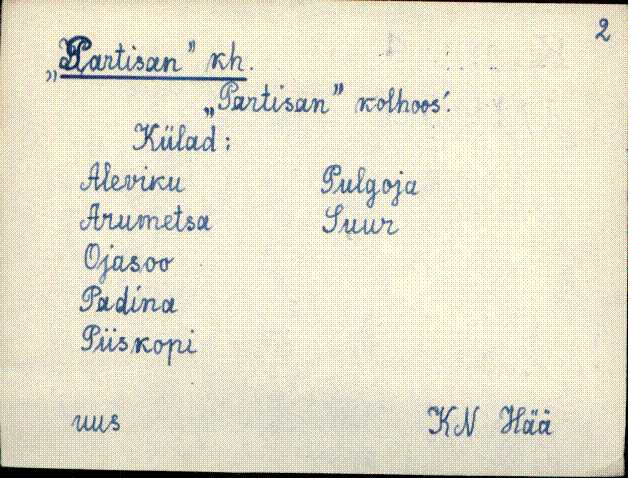 2
„Partisan” kh.
„Partisan” kolhoos:
Külad:
Aleviku Pulgoja
Arumetsa Suur
Ojasoo
Padina
Piiskopi
uus KN Hää